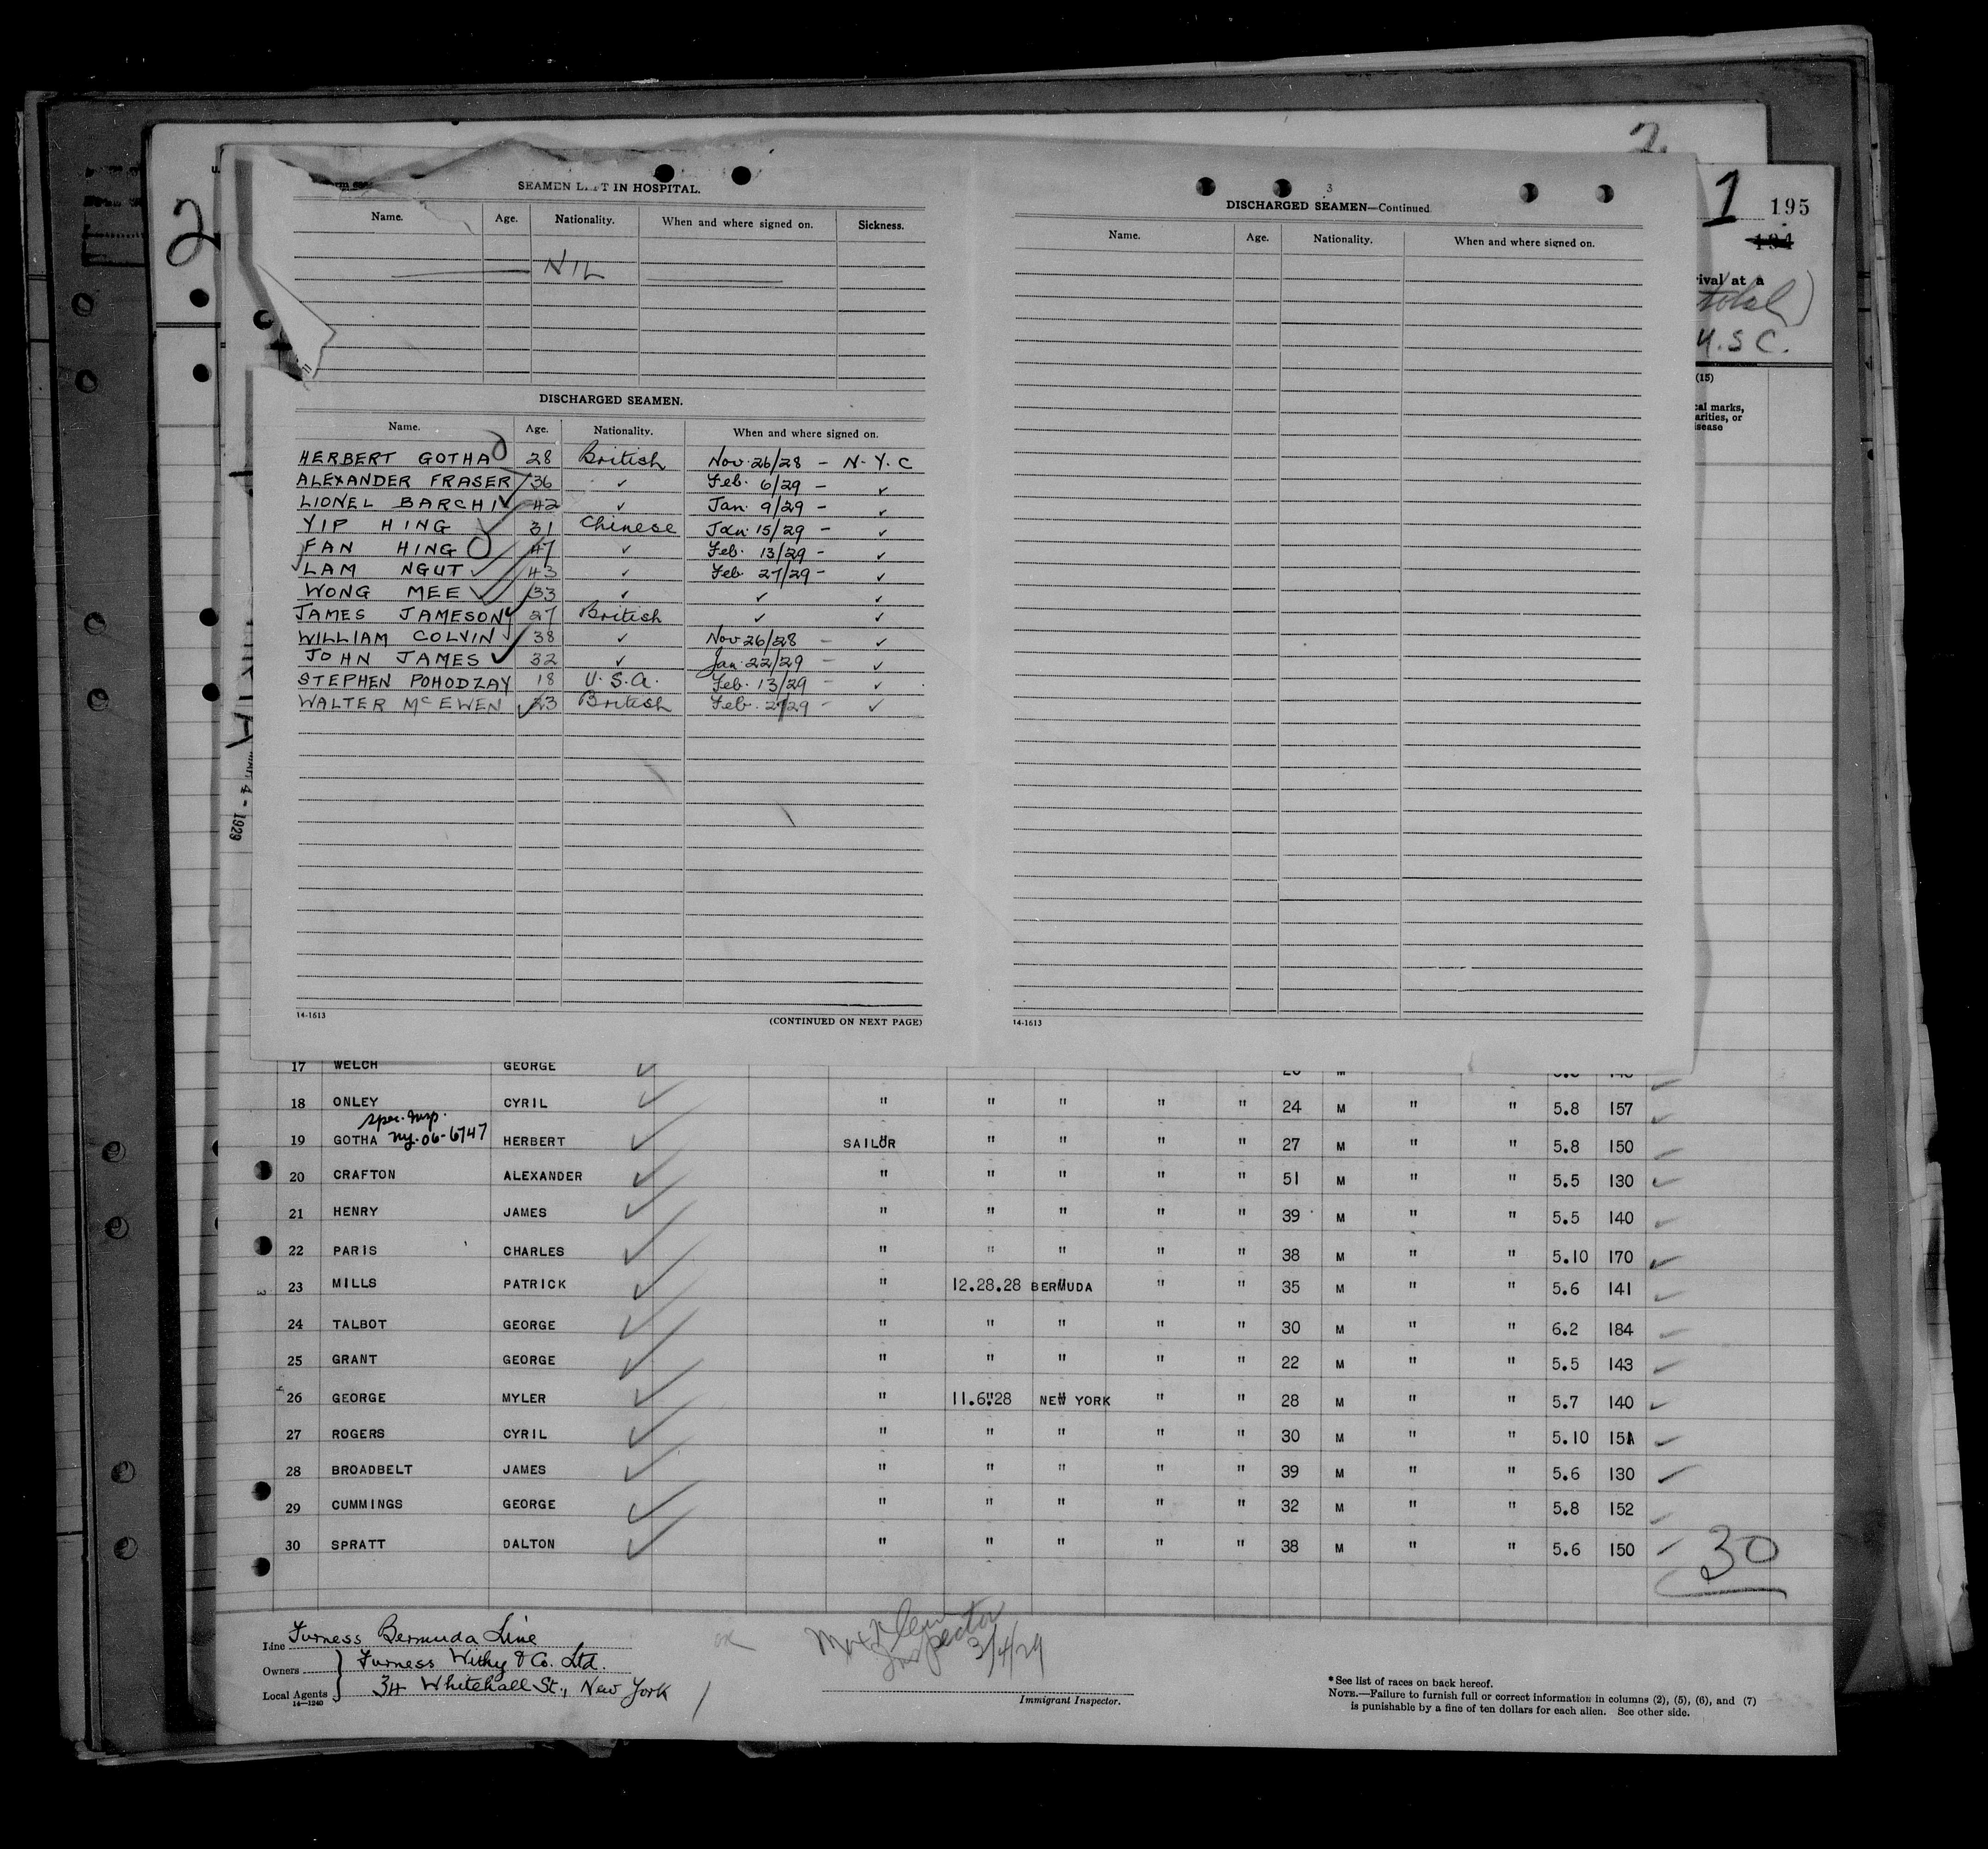 2
2
1
195
194
rival at a
total)
U.S C.
(15)
cal marks,
arities, or
isease
SEAMEN LEFT IN HOSPITAL.
Name. Age. Nationality. When and where signed on. Sickness.
NIL
DISCHARGED SEAMEN.
Name. Age. Nationality. When and where signed on.
HERBERT GOTHA 28 British Nov. 26/28 - N.Y.C
ALEXANDER FRASER 36 ✓ Feb. 6/29 - ✓
LIONEL BARCHI 42 ✓ Jan. 9/29 - ✓
YIP HING 31 Chinese Jan. 15/29 - ✓
FAN HING 47 ✓ Feb. 13/29 - ✓
LAM NGUT 43 ✓ Feb 27/29 - ✓
WONG MEE 33 ✓ ✓ ✓
JAMES JAMESON 27 British ✓ ✓
WILLIAM COLVIN 38 ✓ Nov 26/28 - ✓
JOHN JAMES 32 ✓ Jan. 22/29 - ✓
STEPHEN POHODZAY 18 U.S.A. Feb. 13/29 - ✓
WALTER McEWEN 23 British Feb. 27/29 - ✓
14-1613 (CONTINUED ON NEXT PAGE)
3
DISCHARGED SEAMEN—Continued
Name. Age. Nationality. When and where signed on.
14-1613
MAR 4 - 1929
17 WELCH GEORGE
18 ONLEY CYRIL " " " " " 24 M " " 5.8 157
spec. insp.
19 GOTHA NY.06-6747 HERBERT SAILOR " " " " 27 M " " 5.8 150
20 CRAFTON ALEXANDER " " " " " 51 M " " 5.5 130
21 HENRY JAMES " " " " " 39 M " " 5.5 140
22 PARIS CHARLES " " " " " 38 M " " 5.10 170
23 MILLS PATRICK " 12.28.28 BERMUDA " " 35 M " " 5.6 141
24 TALBOT GEORGE " " " " " 30 M " " 6.2 184
25 GRANT GEORGE " " " " " 22 M " " 5.5 143
26 GEORGE MYLER " 11.6.28 NEW YORK " " 28 M " " 5.7 140
27 ROGERS CYRIL " " " " " 30 M " " 5.10 151
28 BROADBELT JAMES " " " " " 39 M " " 5.6 130
29 CUMMINGS GEORGE " " " " " 32 M " " 5.8 152
30 SPRATT DALTON " " " " " 38 M " " 5.6 150
30
Line Furness Bermuda Line
Owners Furness Withy & Co. Ltd.
Local Agents 34 Whitehall St., New York
14—1240
Inspector
3/4/29
Immigrant Inspector.
*See list of races on back hereof.
NOTE.—Failure to furnish full or correct information in columns (2), (5), (6), and (7)
is punishable by a fine of ten dollars for each alien. See other side.